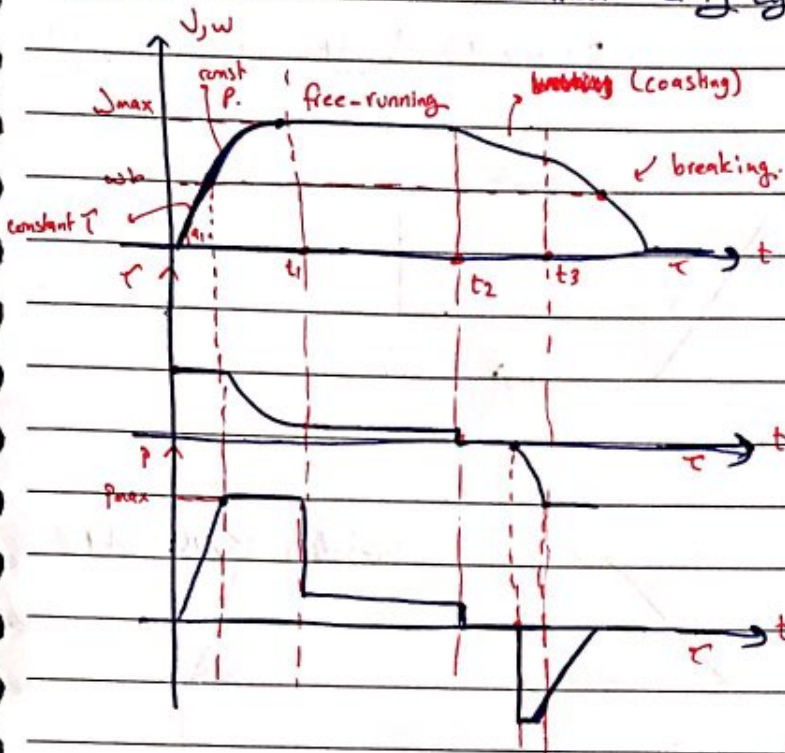 V,w
const
P.
free-running
(coasting)
Vmax
wb
breaking.
constant τ
a1
t1
t2
t3
τ
t
τ
t
τ
P
Pmax
t
τ